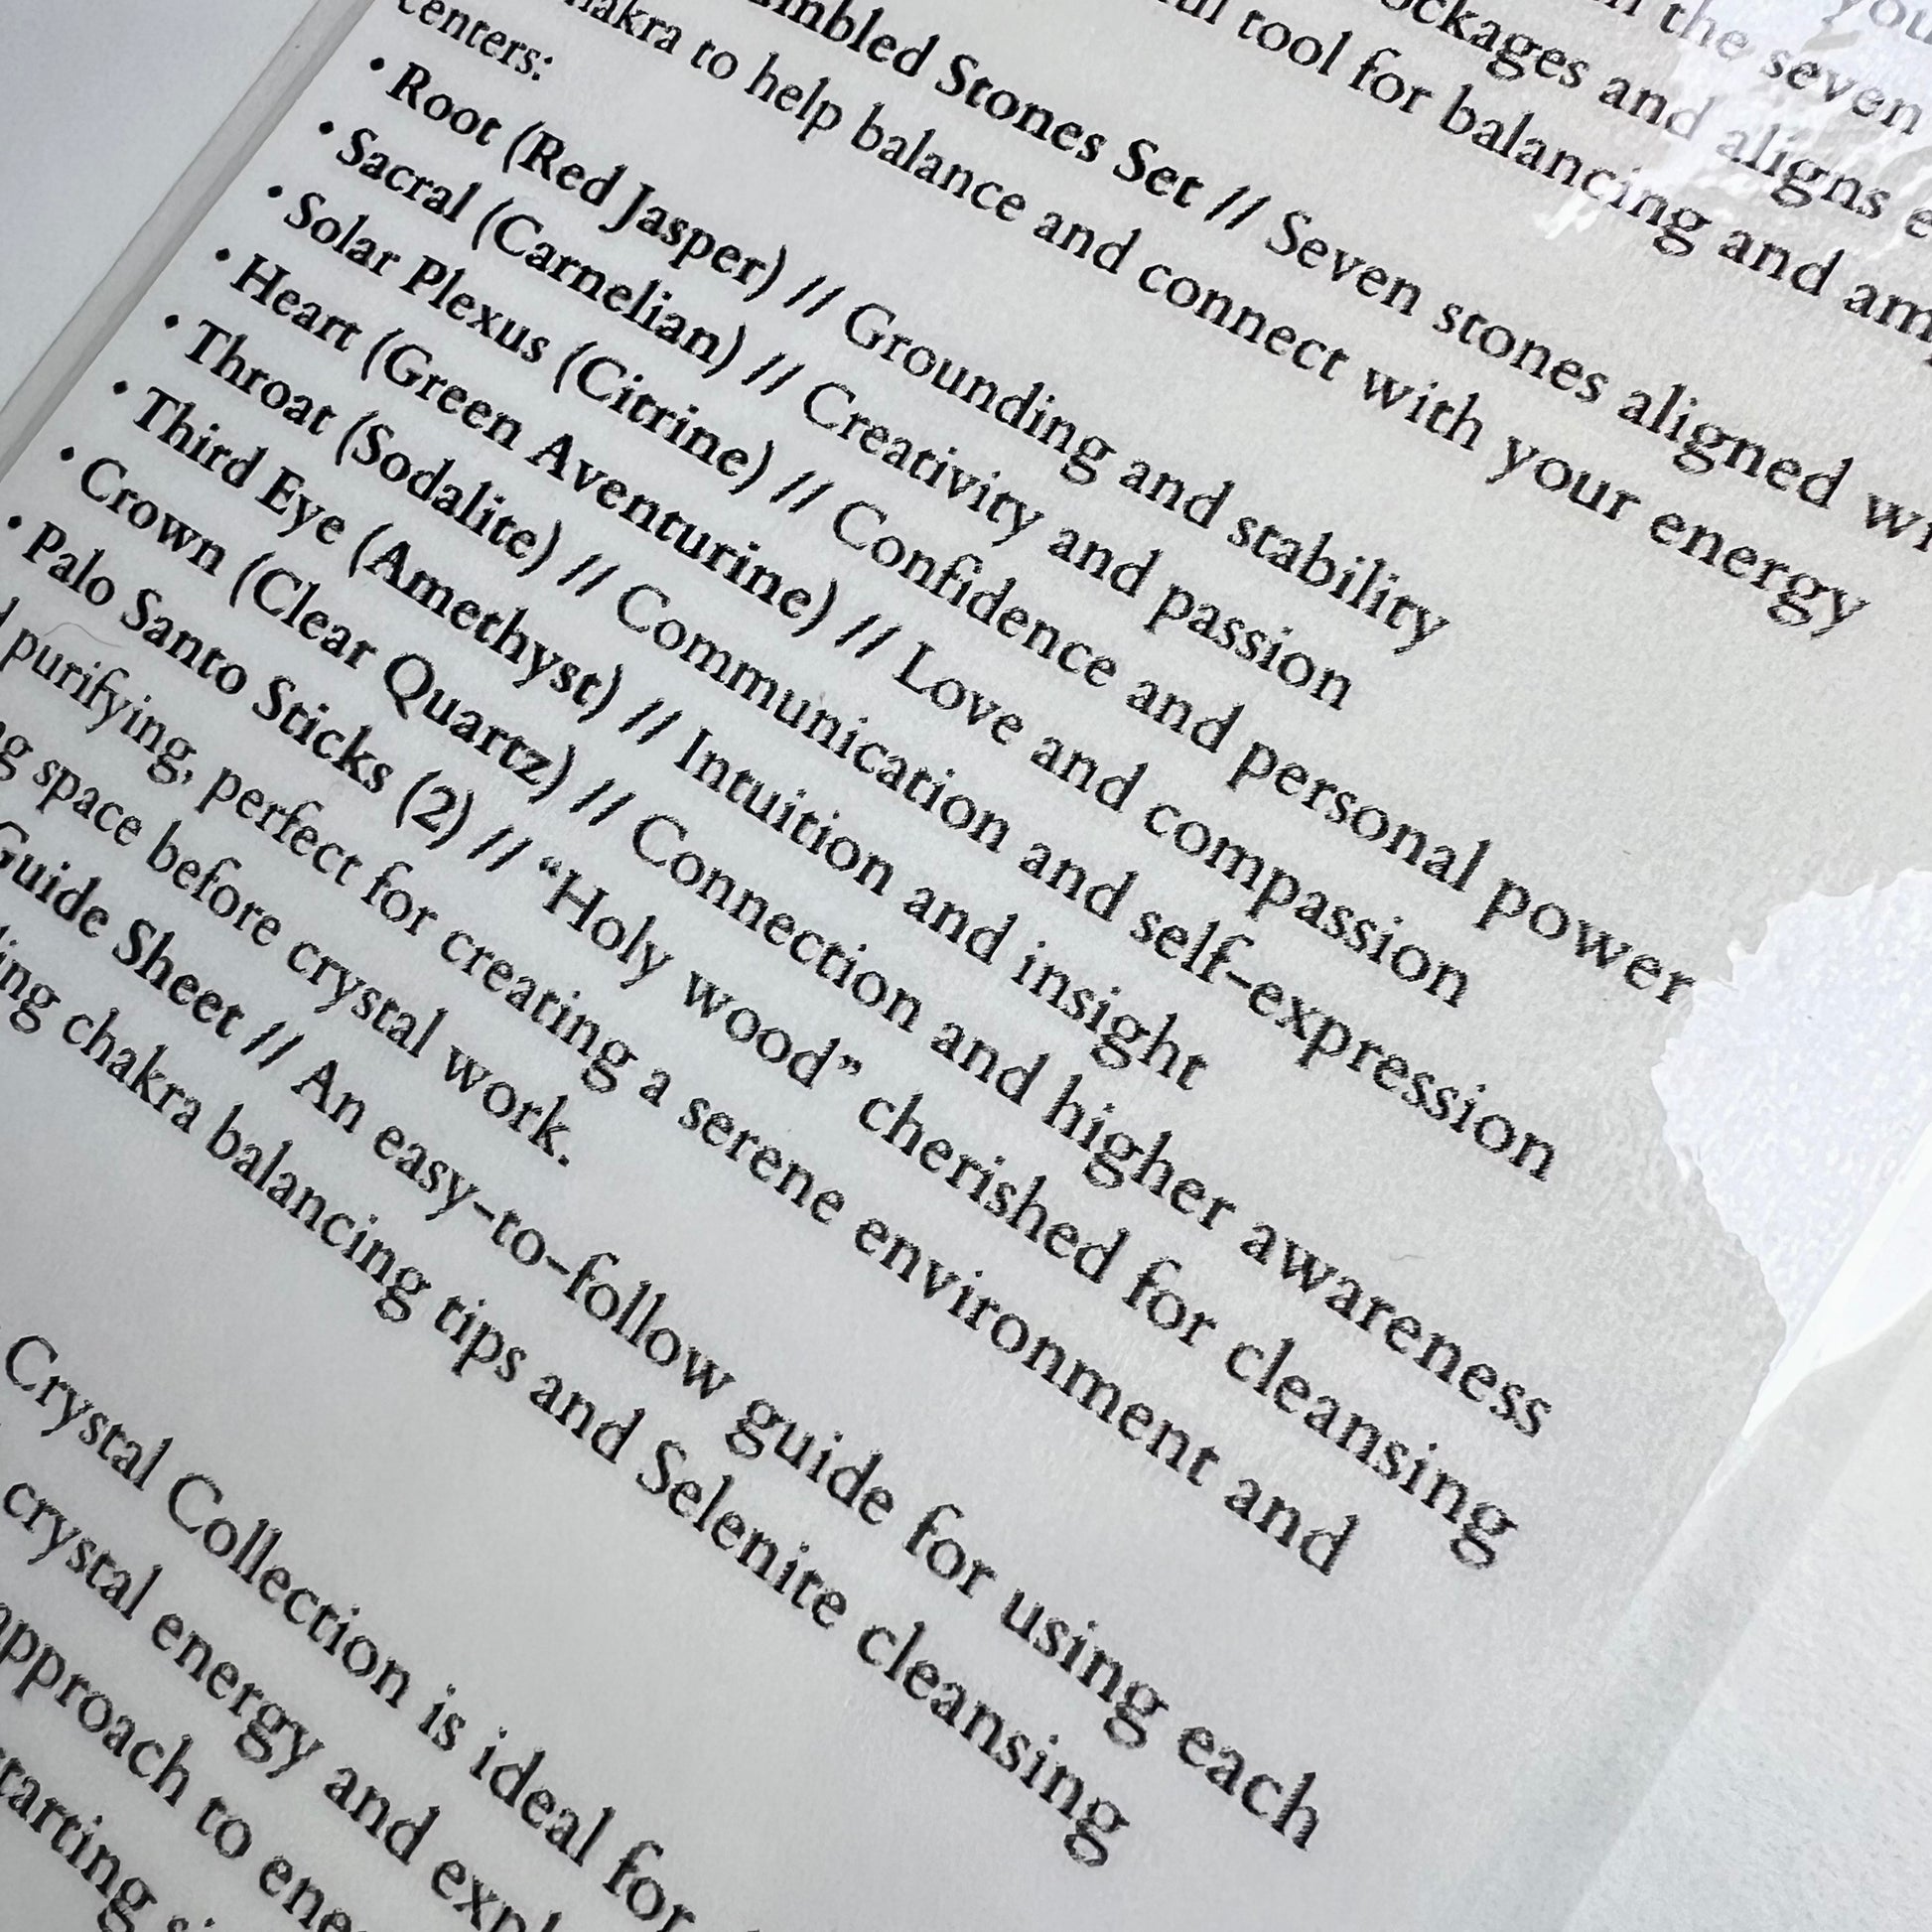 you
in the seven
ockages and aligns
tool for balancing and am
mbled Stones Set // Seven stones aligned wi
hakra to help balance and connect with your energy
centers:
• Root (Red Jasper) // Grounding and stability
• Sacral (Carnelian) // Creativity and passion
• Solar Plexus (Citrine) // Confidence and personal power
• Heart (Green Aventurine) // Love and compassion
• Throat (Sodalite) // Communication and self-expression
• Third Eye (Amethyst) // Intuition and insight
• Crown (Clear Quartz) // Connection and higher awareness
• Palo Santo Sticks (2) // “Holy wood” cherished for cleansing
purifying, perfect for creating a serene environment and
ng space before crystal work.
Guide Sheet // An easy-to-follow guide for using each
ing chakra balancing tips and Selenite cleansing
Crystal Collection is ideal for
crystal energy and expl
approach to ene
tarting si